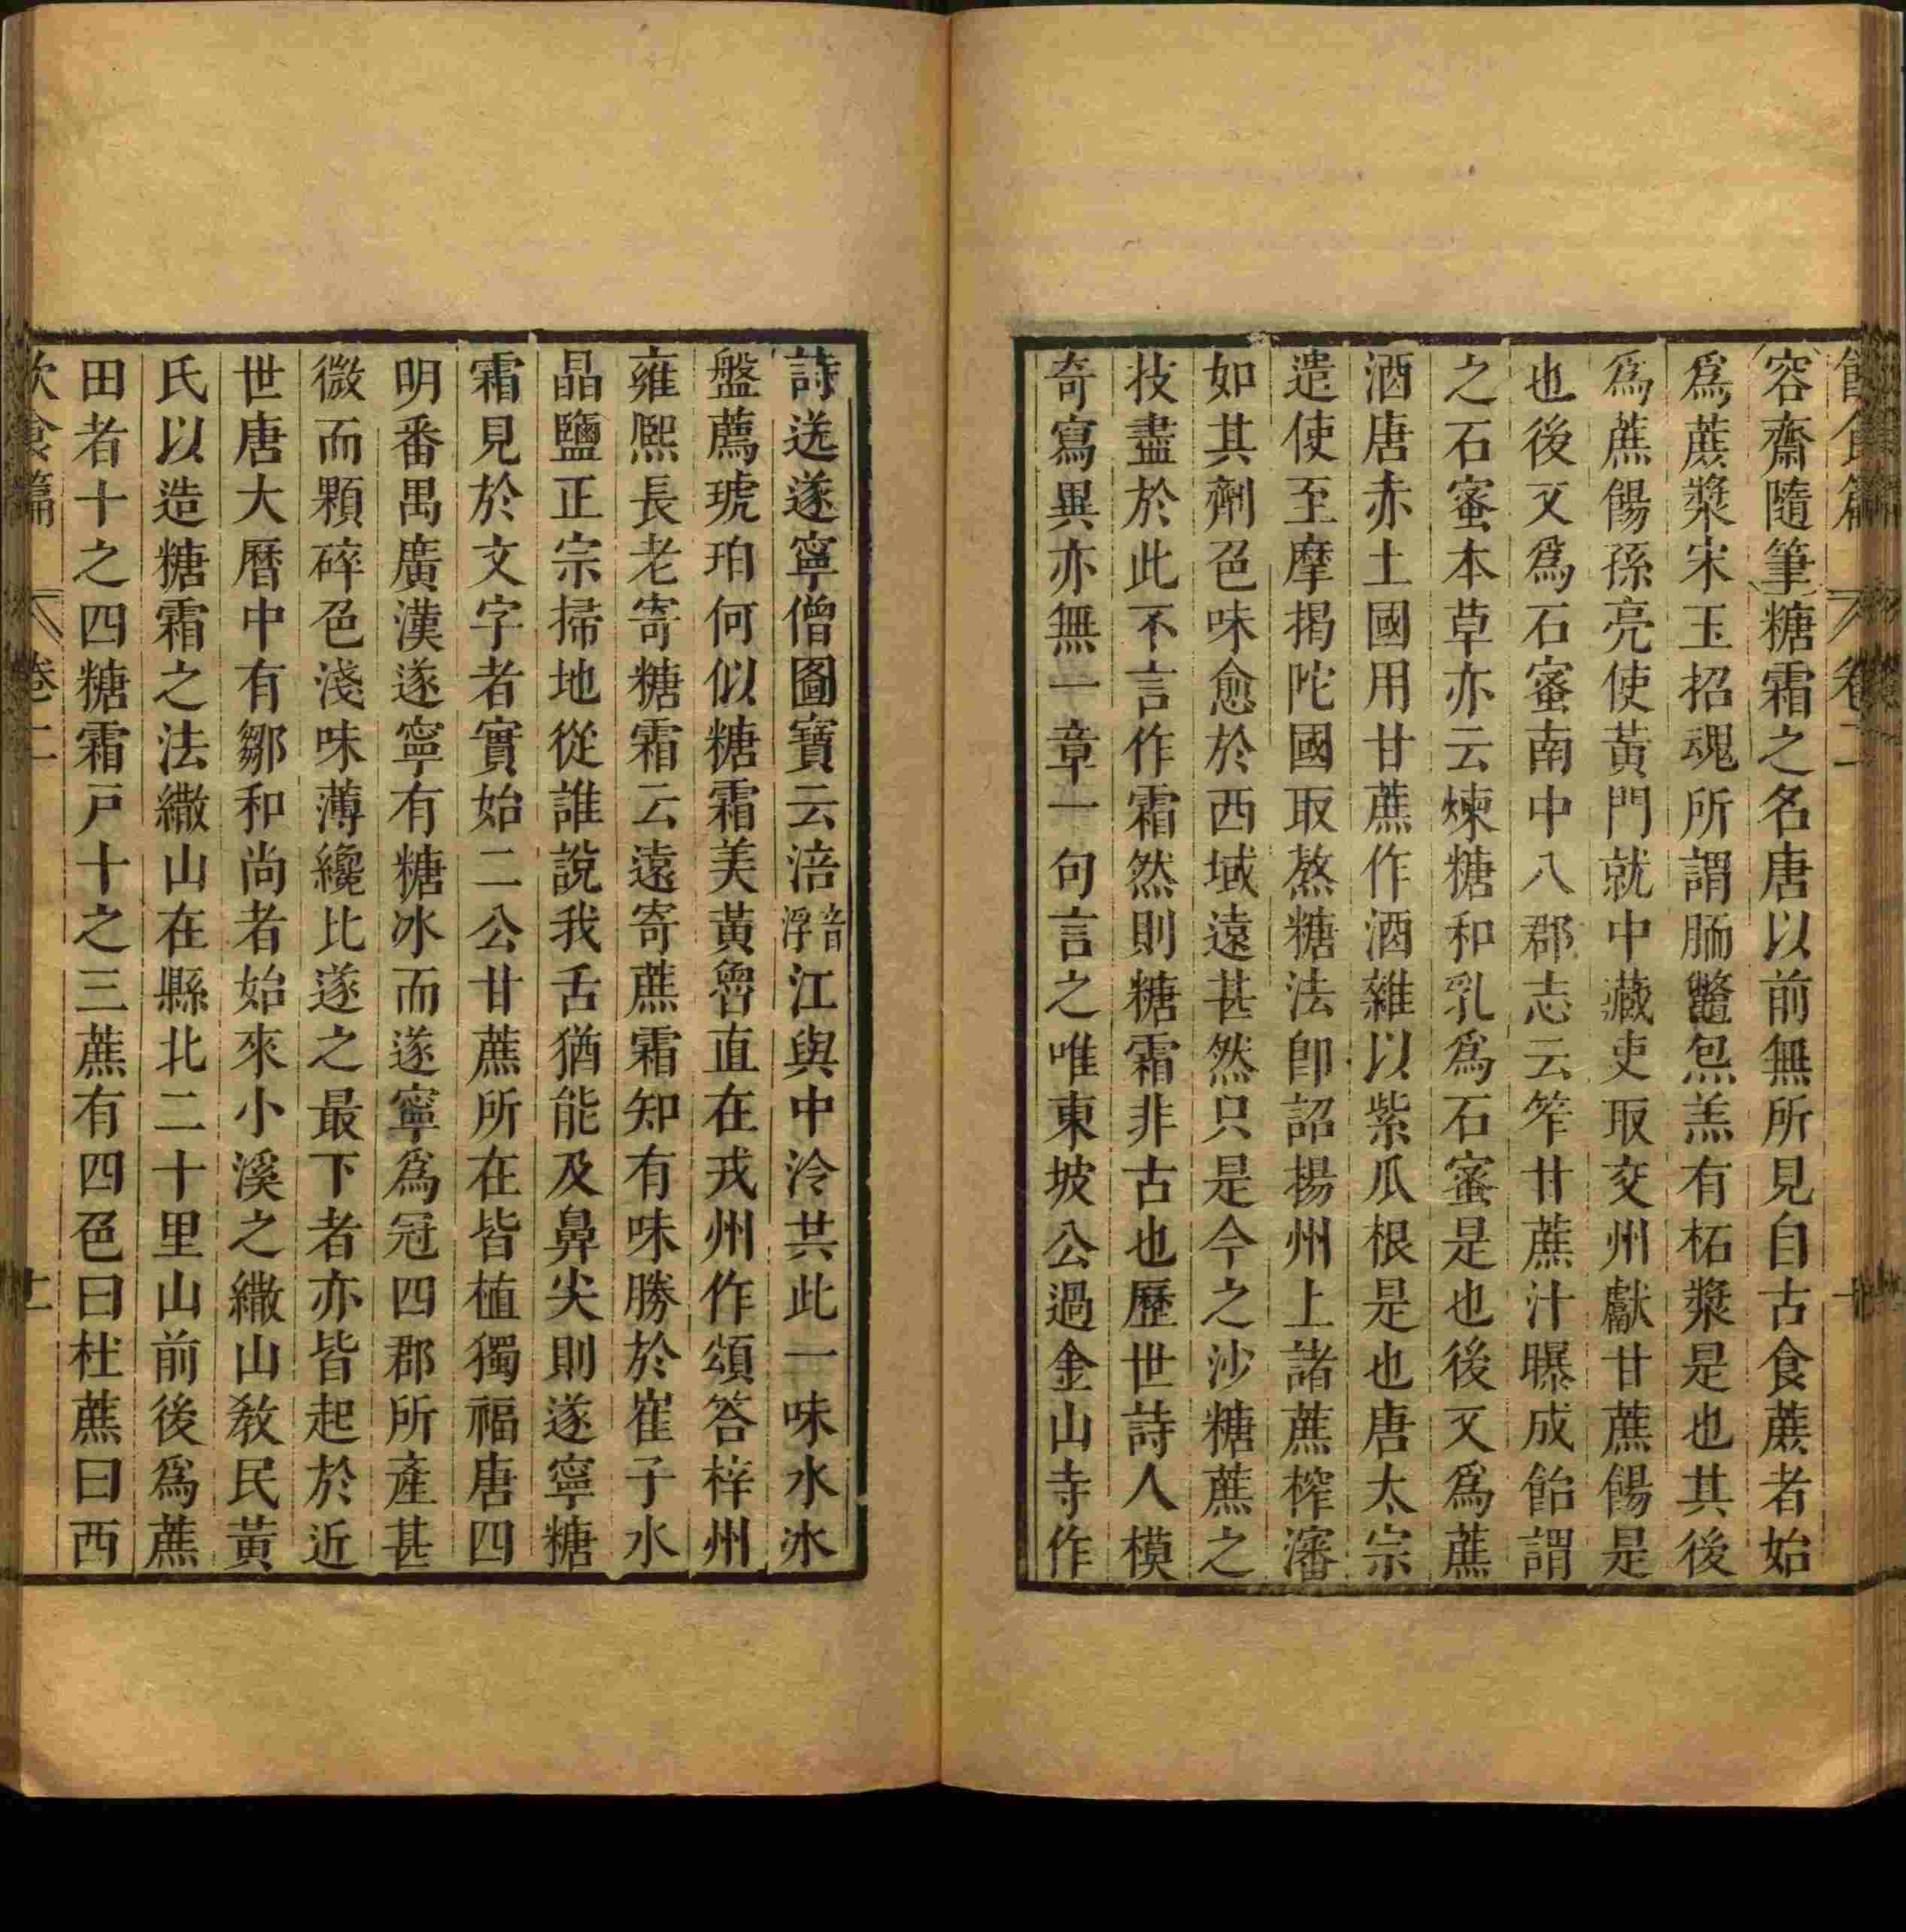 容齋隨筆糖霜之名唐以前無所見自古食蔗者始
爲蔗漿宋玉招魂所謂胹鼈炰羔有柘漿是也其後
爲蔗餳孫亮使黃門就中藏吏取交州獻甘蔗餳是
也後又爲石蜜南中八郡志云笮甘蔗汁曝成飴謂
之石蜜本草亦云煉糖和乳爲石蜜是也後又爲蔗
酒唐赤土國用甘蔗作酒雜以紫瓜根是也唐太宗
遣使至摩揭陀國取熬糖法卽詔揚州上諸蔗榨瀋
如其劑色味愈於西域遠甚然只是今之沙糖蔗之
技盡於此不言作霜然則糖霜非古也歷世詩人模
奇寫異亦無一章一句言之唯東坡公過金山寺作
詩送遂寧僧圖寶云涪音浮江與中泠共此一味水冰
盤薦琥珀何似糖霜美黃魯直在戎州作頌答梓州
雍熙長老寄糖霜云遠寄蔗霜知有味勝於崔子水
晶鹽正宗掃地從誰說我舌猶能及鼻尖則遂寧糖
霜見於文字者實始二公甘蔗所在皆植獨福唐四
明番禺廣漢遂寧有糖冰而遂寧爲冠四郡所產甚
微而顆碎色淺味薄纔比遂之最下者亦皆起於近
世唐大曆中有鄒和尚者始來小溪之繖山教民黃
氏以造糖霜之法繖山在縣北二十里山前後爲蔗
田者十之四糖霜戸十之三蔗有四色曰杜蔗曰西
飲食篇 卷二 十一